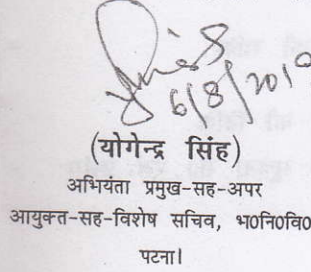 6/8/2010
(योगेन्द्र सिंह)
अभियंता प्रमुख-सह-अपर
आयुक्त-सह-विशेष सचिव, भ0नि0वि0
पटना।